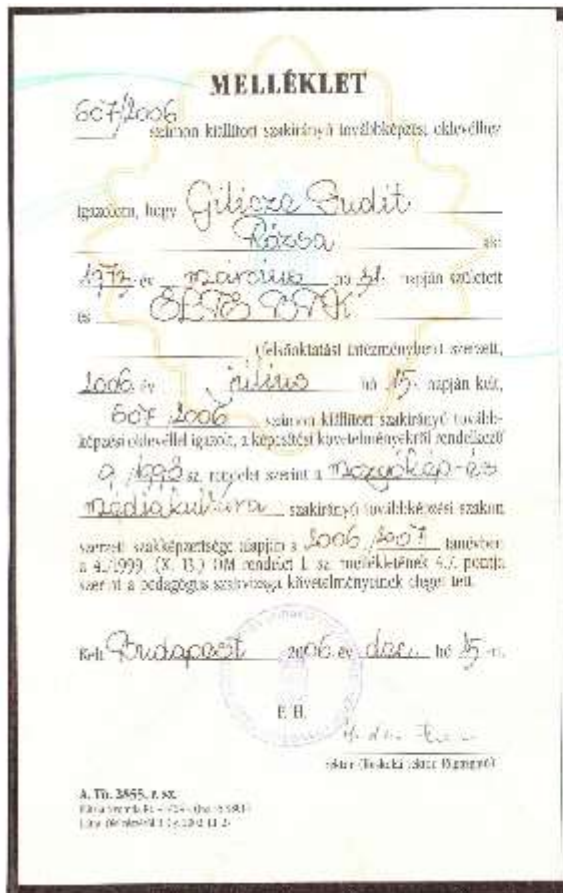 MELLÉKLET
607/2006
számon kiállított szakirányú továbbképzési oklevélhez
igazolom, hogy Gilicza Judit
Rózsa
1973 év március hó 31. napján született
és ELTE BTK
(felsőoktatási intézményben) szerzett,
2006 év július hó 15. napján kelt,
607/2006 számon kiállított szakirányú tovább-
képzési oklevéllel igazolt, a képesítési követelményekről rendelkező
9/1998 sz. rendelet szerint a mozgókép-és
médiakultúra szakirányú továbbképzési szakon
szerzett szakképzettsége alapján a 2006/2007 tanévben
a 41/1999. (X. 13.) OM rendelet 1. sz. mellékletének 4.7. pontja
szerint a pedagógus szakvizsga követelményeinek eleget tett.
Kelt Budapest 2006 év dec. hó 15-n.
P. H.
rektor (főiskolai rektor, főigazgató)
A. Tü. 2855. r. sz.